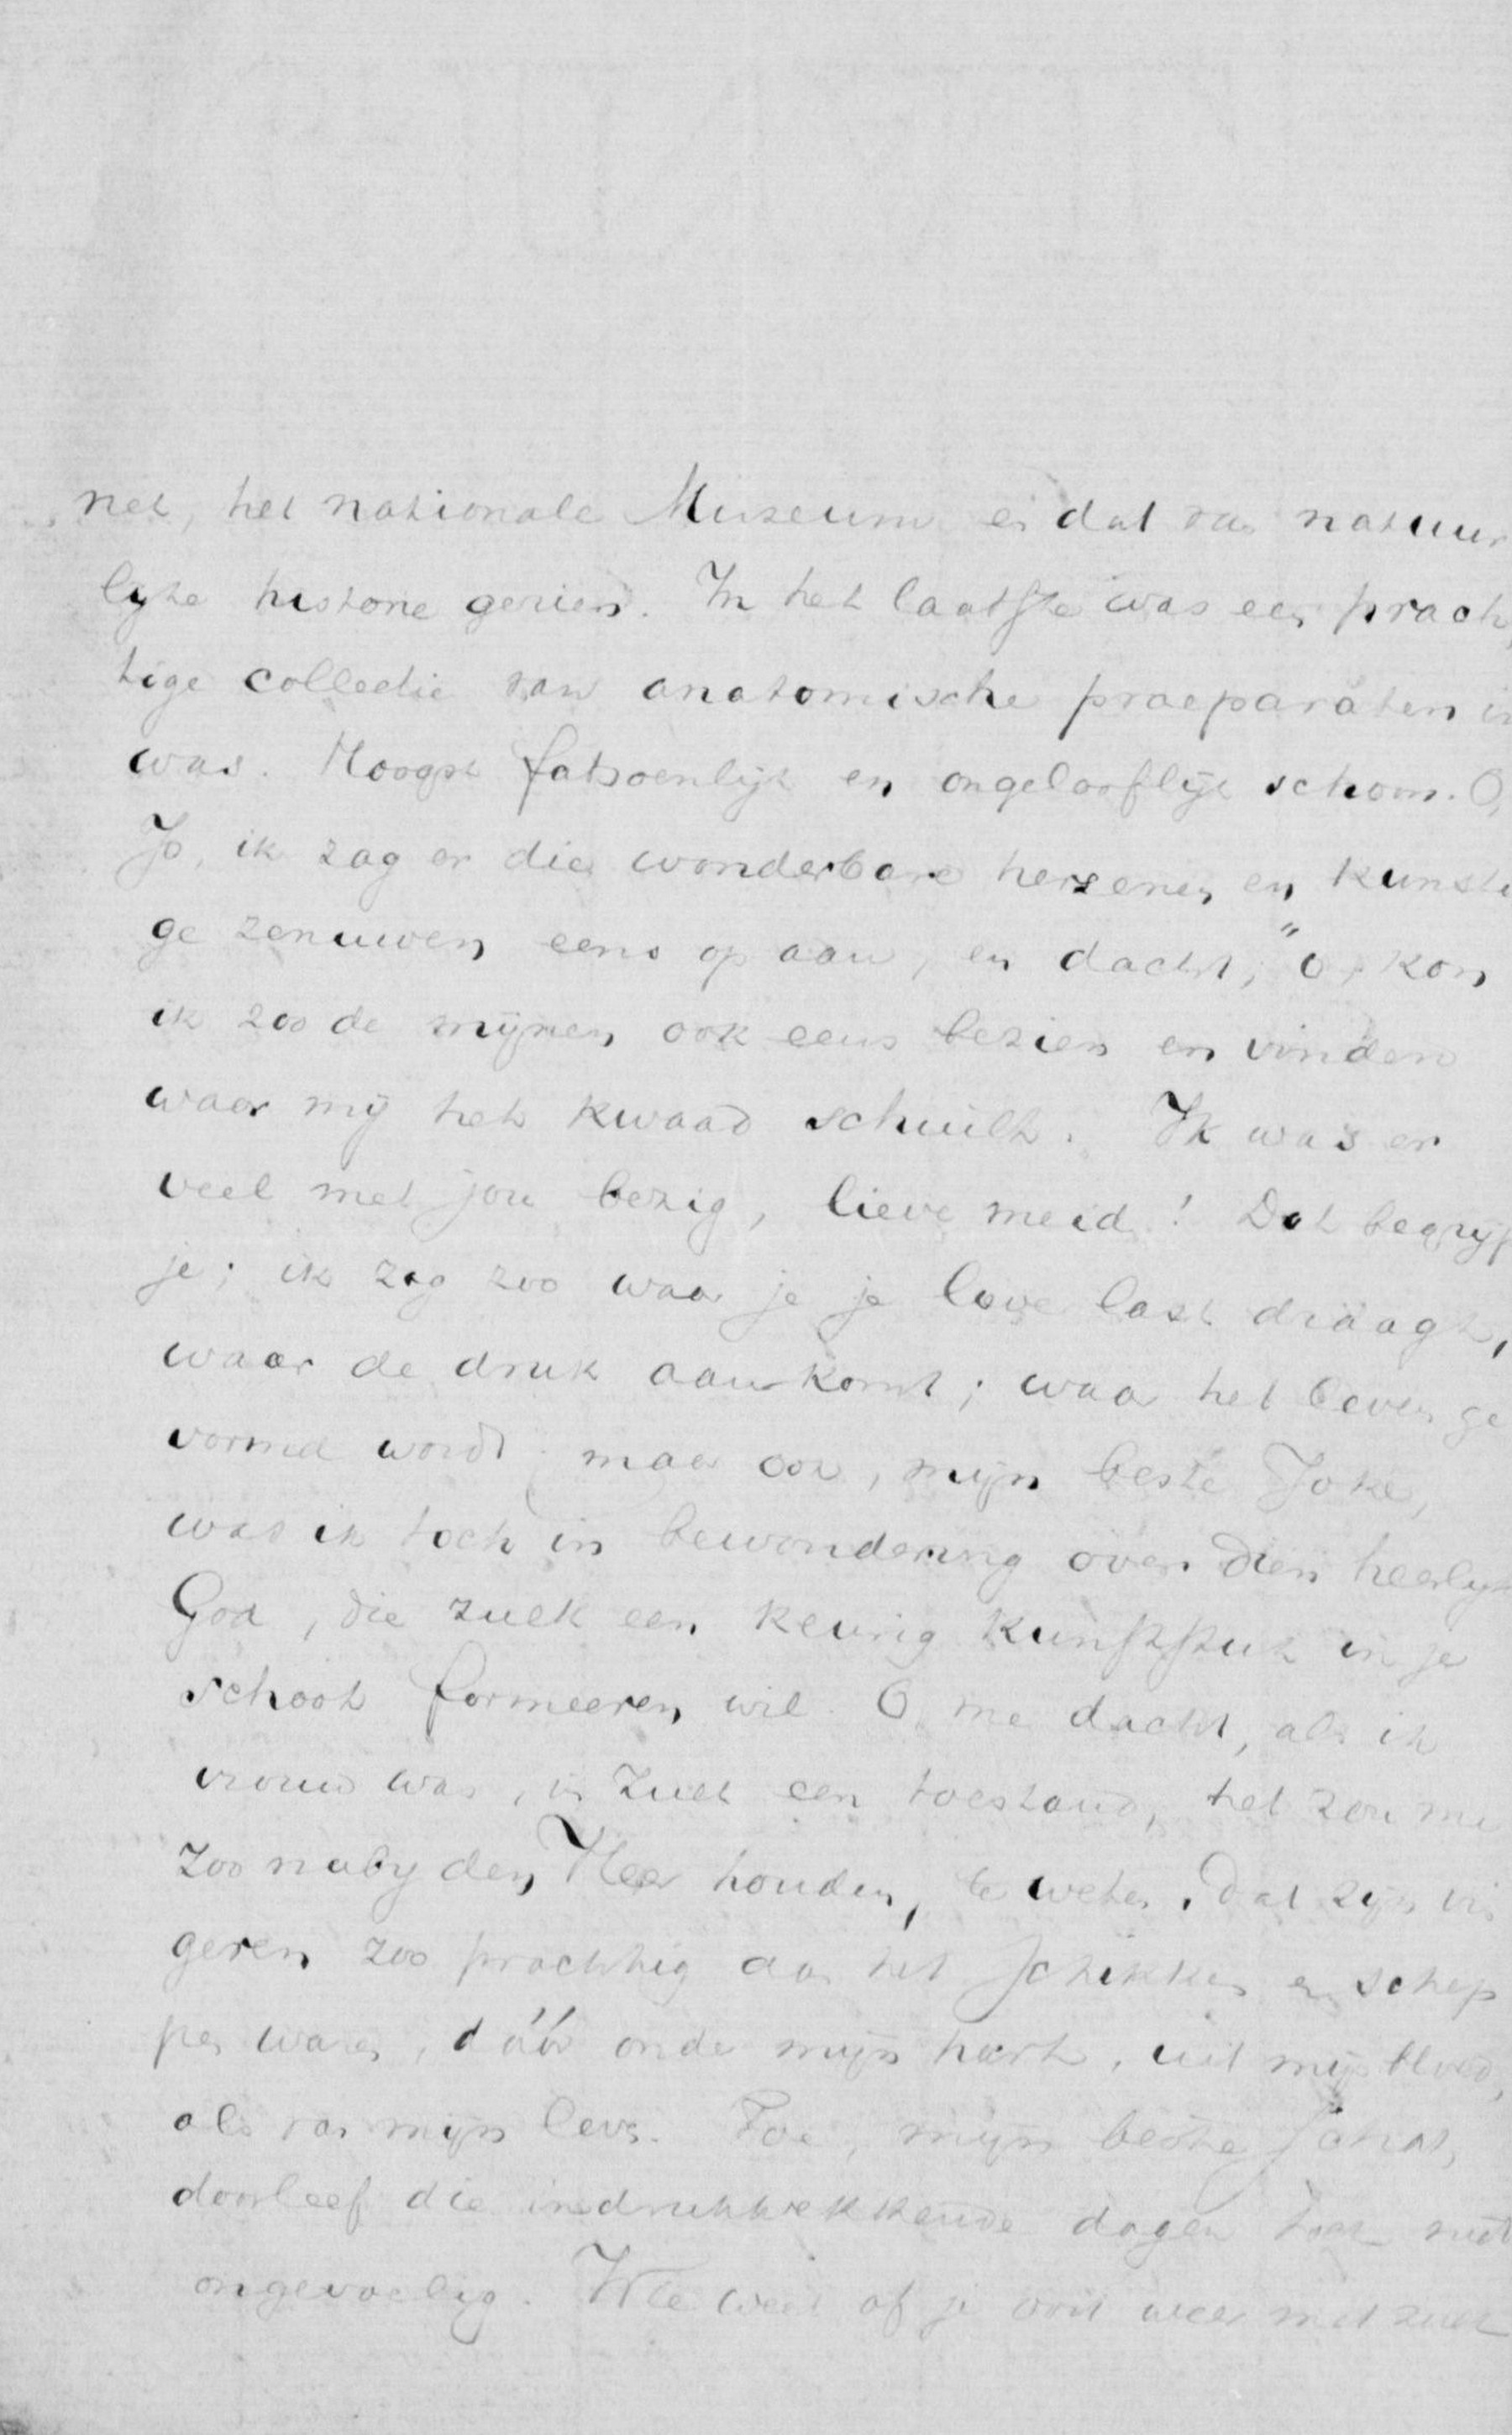 net, het nationale Museum en dat van natuur
lyke historie gezien. In het laatste was een prach
tige collectie van anatomische praeparaten in
was. Hoogst fatsoenlijk en ongelooflijk schoon. O,
Jo, ik zag er die wonderbare hersenen en kunsti
ge zenuwen eens op aan, en dacht, "o, kon
ik zoo de mijnen ook eens bezien en vinden
waar mij het kwaad schuilt. Ik was er
veel met jou bezig, lieve meid! Dat begrijp
je; ik zag zoo waar je je lieve last draagt,
waar de druk aankomt; waar het leven ge
vormd wordt; maar ook, mijn beste Joke,
was ik toch in bewondering over dien heerlijk
God, die zulk een keurig kunststuk in je
schoot formeeren wil. O me dacht, als ik
vrouw was, in zulk een toestand, het zou me
zoo naby den Heer houden, te weten, dat zijn vin
geren zoo prachtig aan het schikken en schep
pen waren, dáár onder mijn hart, uit mijn bloed,
als van mijn leven. Toe, mijn beste schat,
doorleef die indrukwekkende dagen toch niet
ongevoelig. Wie weet of je ooit weer met zulk